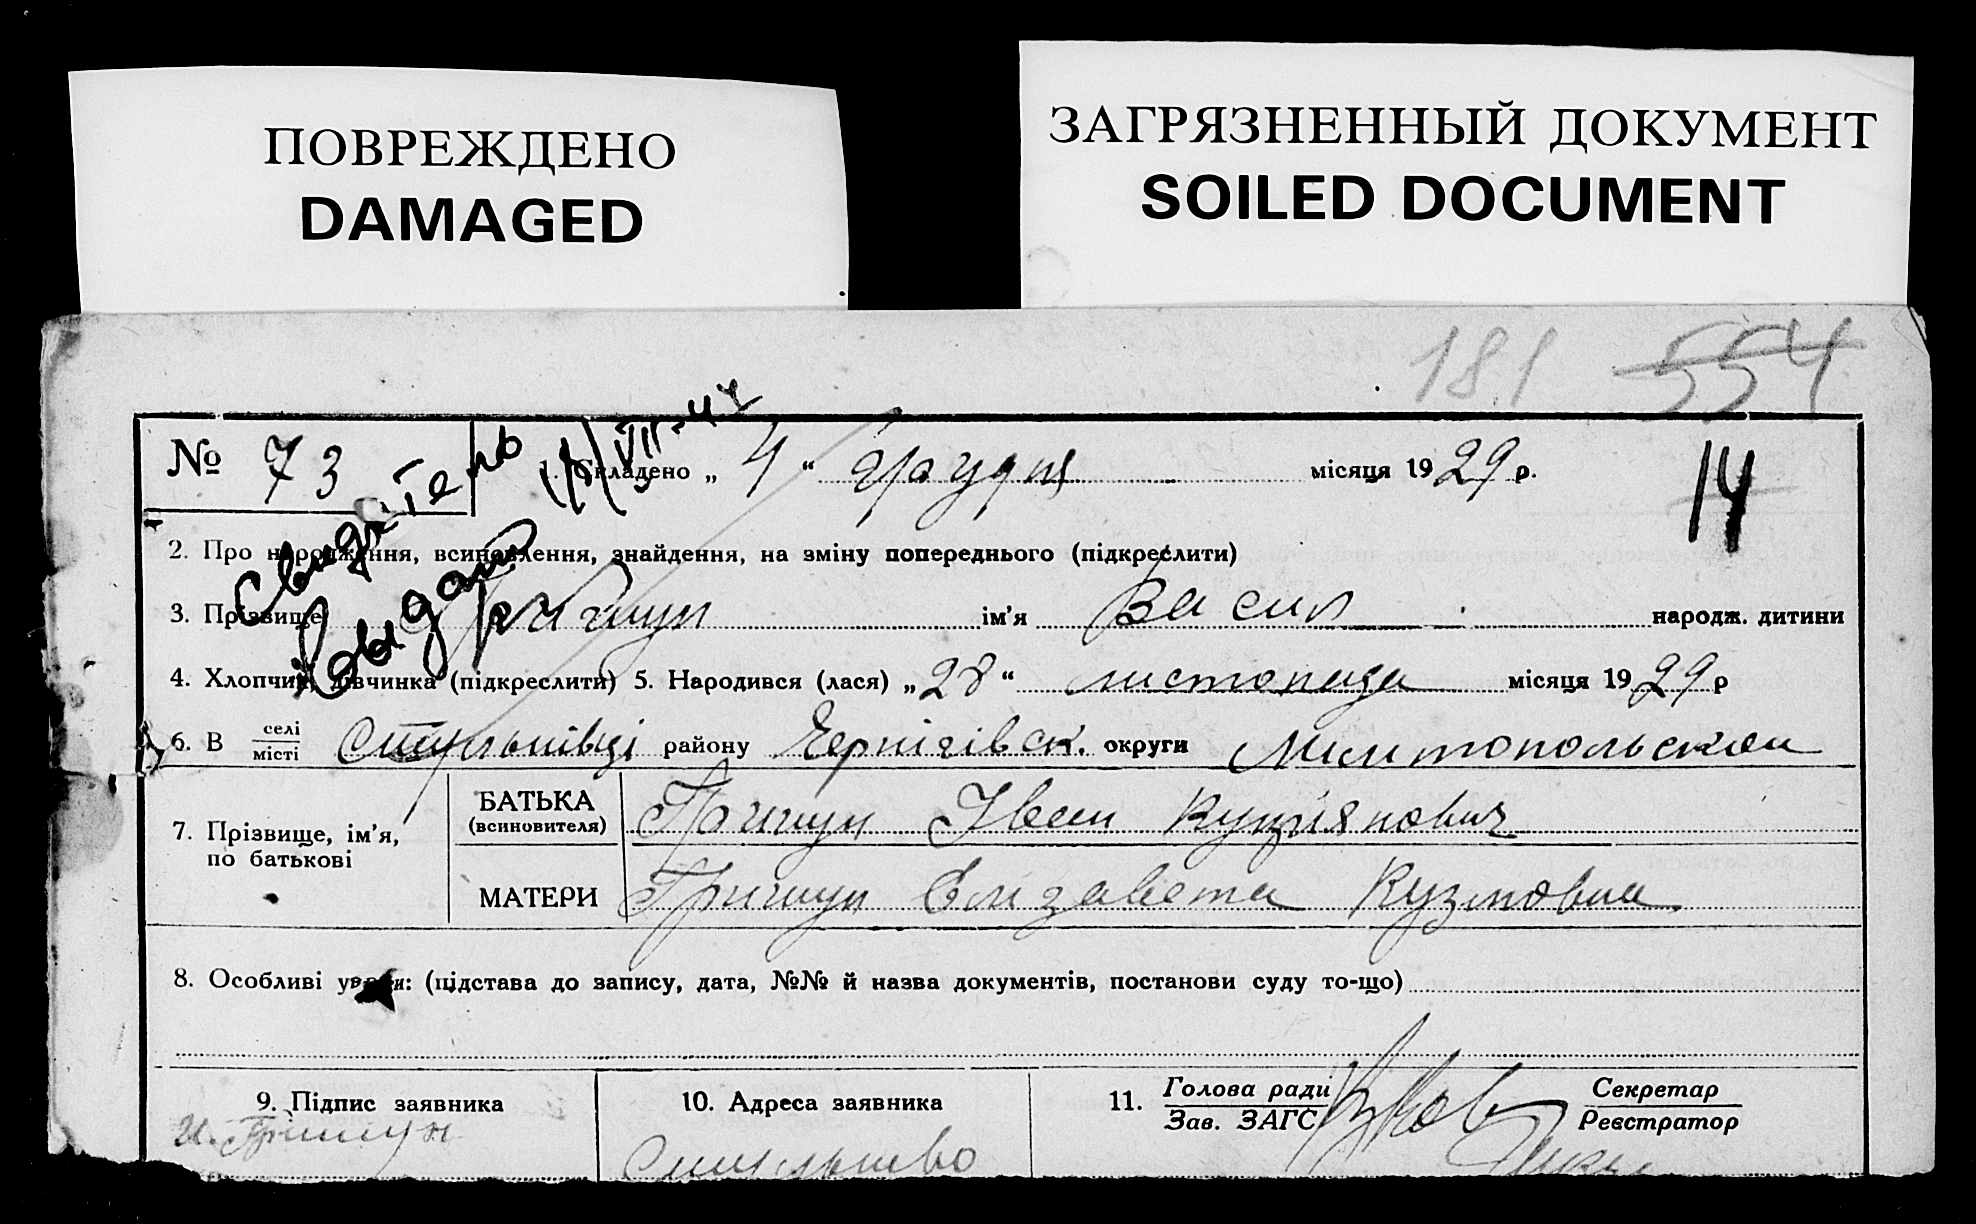 ПОВРЕЖДЕНО
DAMAGED
ЗАГРЯЗНЕННЫЙ ДОКУМЕНТ
SOILED DOCUMENT
181 554
№ 73 Складено „ 4 “ грудня місяця 1929 р.
14
Свидетель
выдано
2. Про народження, всиновлення, знайдення, на зміну попереднього (підкреслити)
3. Прізвище Гришун ім’я Васил народж. дитини
4. Хлопчик, дівчинка (підкреслити) 5. Народився (лася) „28“ листопада місяця 1929 р
6. В селі місті району Чернігівск. округи
7. Прізвище, ім’я, по батькові
БАТЬКА (всиновителя) Гришун Іван
МАТЕРИ Гришун Єлизавета Кузмовна
8. Особливі уваги: (підстава до запису, дата, №№ й назва документів, постанови суду то-що)
9. Підпис заявника
И. Гришун
10. Адреса заявника
11. Голова ради Зав. ЗАГС
Секретар Реєстратор